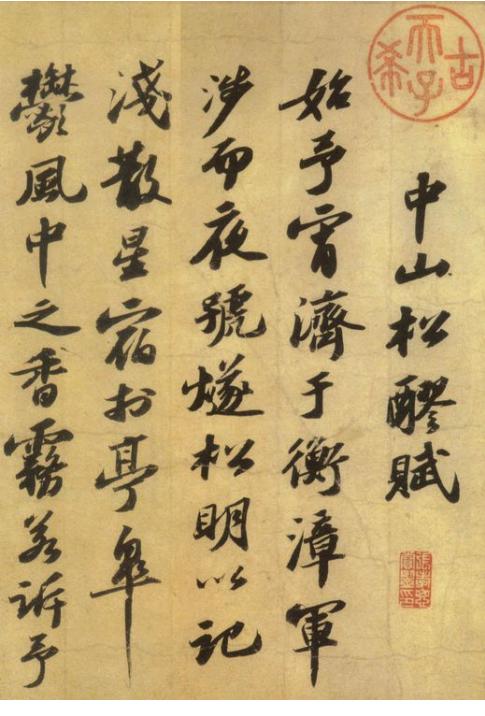 古希天子
中山松醪賦
始予宵濟于衡漳軍
涉而夜號燧松明以記
淺散星宿扵亭皋
鬱風中之香霧若訴予